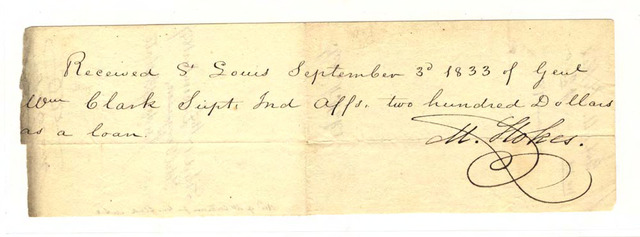 Received St Louis September 3d 1833 of Genl
Wm Clark Supt. Ind Affs. two hundred Dollars
as a loan.
M. Stokes.